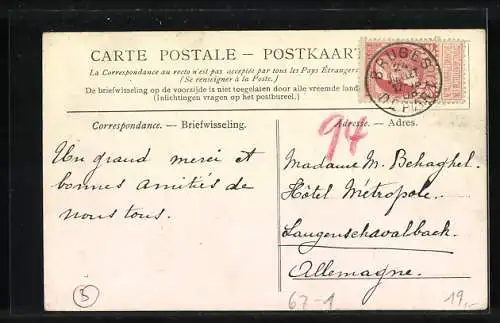 CARTE POSTALE – POSTKAART
La Correspondance au recto n'est pas acceptée par tous les Pays Étrangers
(Se renseigner à la Poste.)
De briefwisseling op de voorzijde is niet toegelaten door alle vreemde landen
(Inlichtingen vragen op het postbureel.)
BRUGES
DEPART
Correspondance. — Briefwisseling.
Adresse. — Adres.
94
Un grand merci et
bonnes amitiés de
nous tous.
Madame M. Behaghel.
Hôtel Métropole.
Langenschavalback.
Allemagne.
3
67-1
19,-